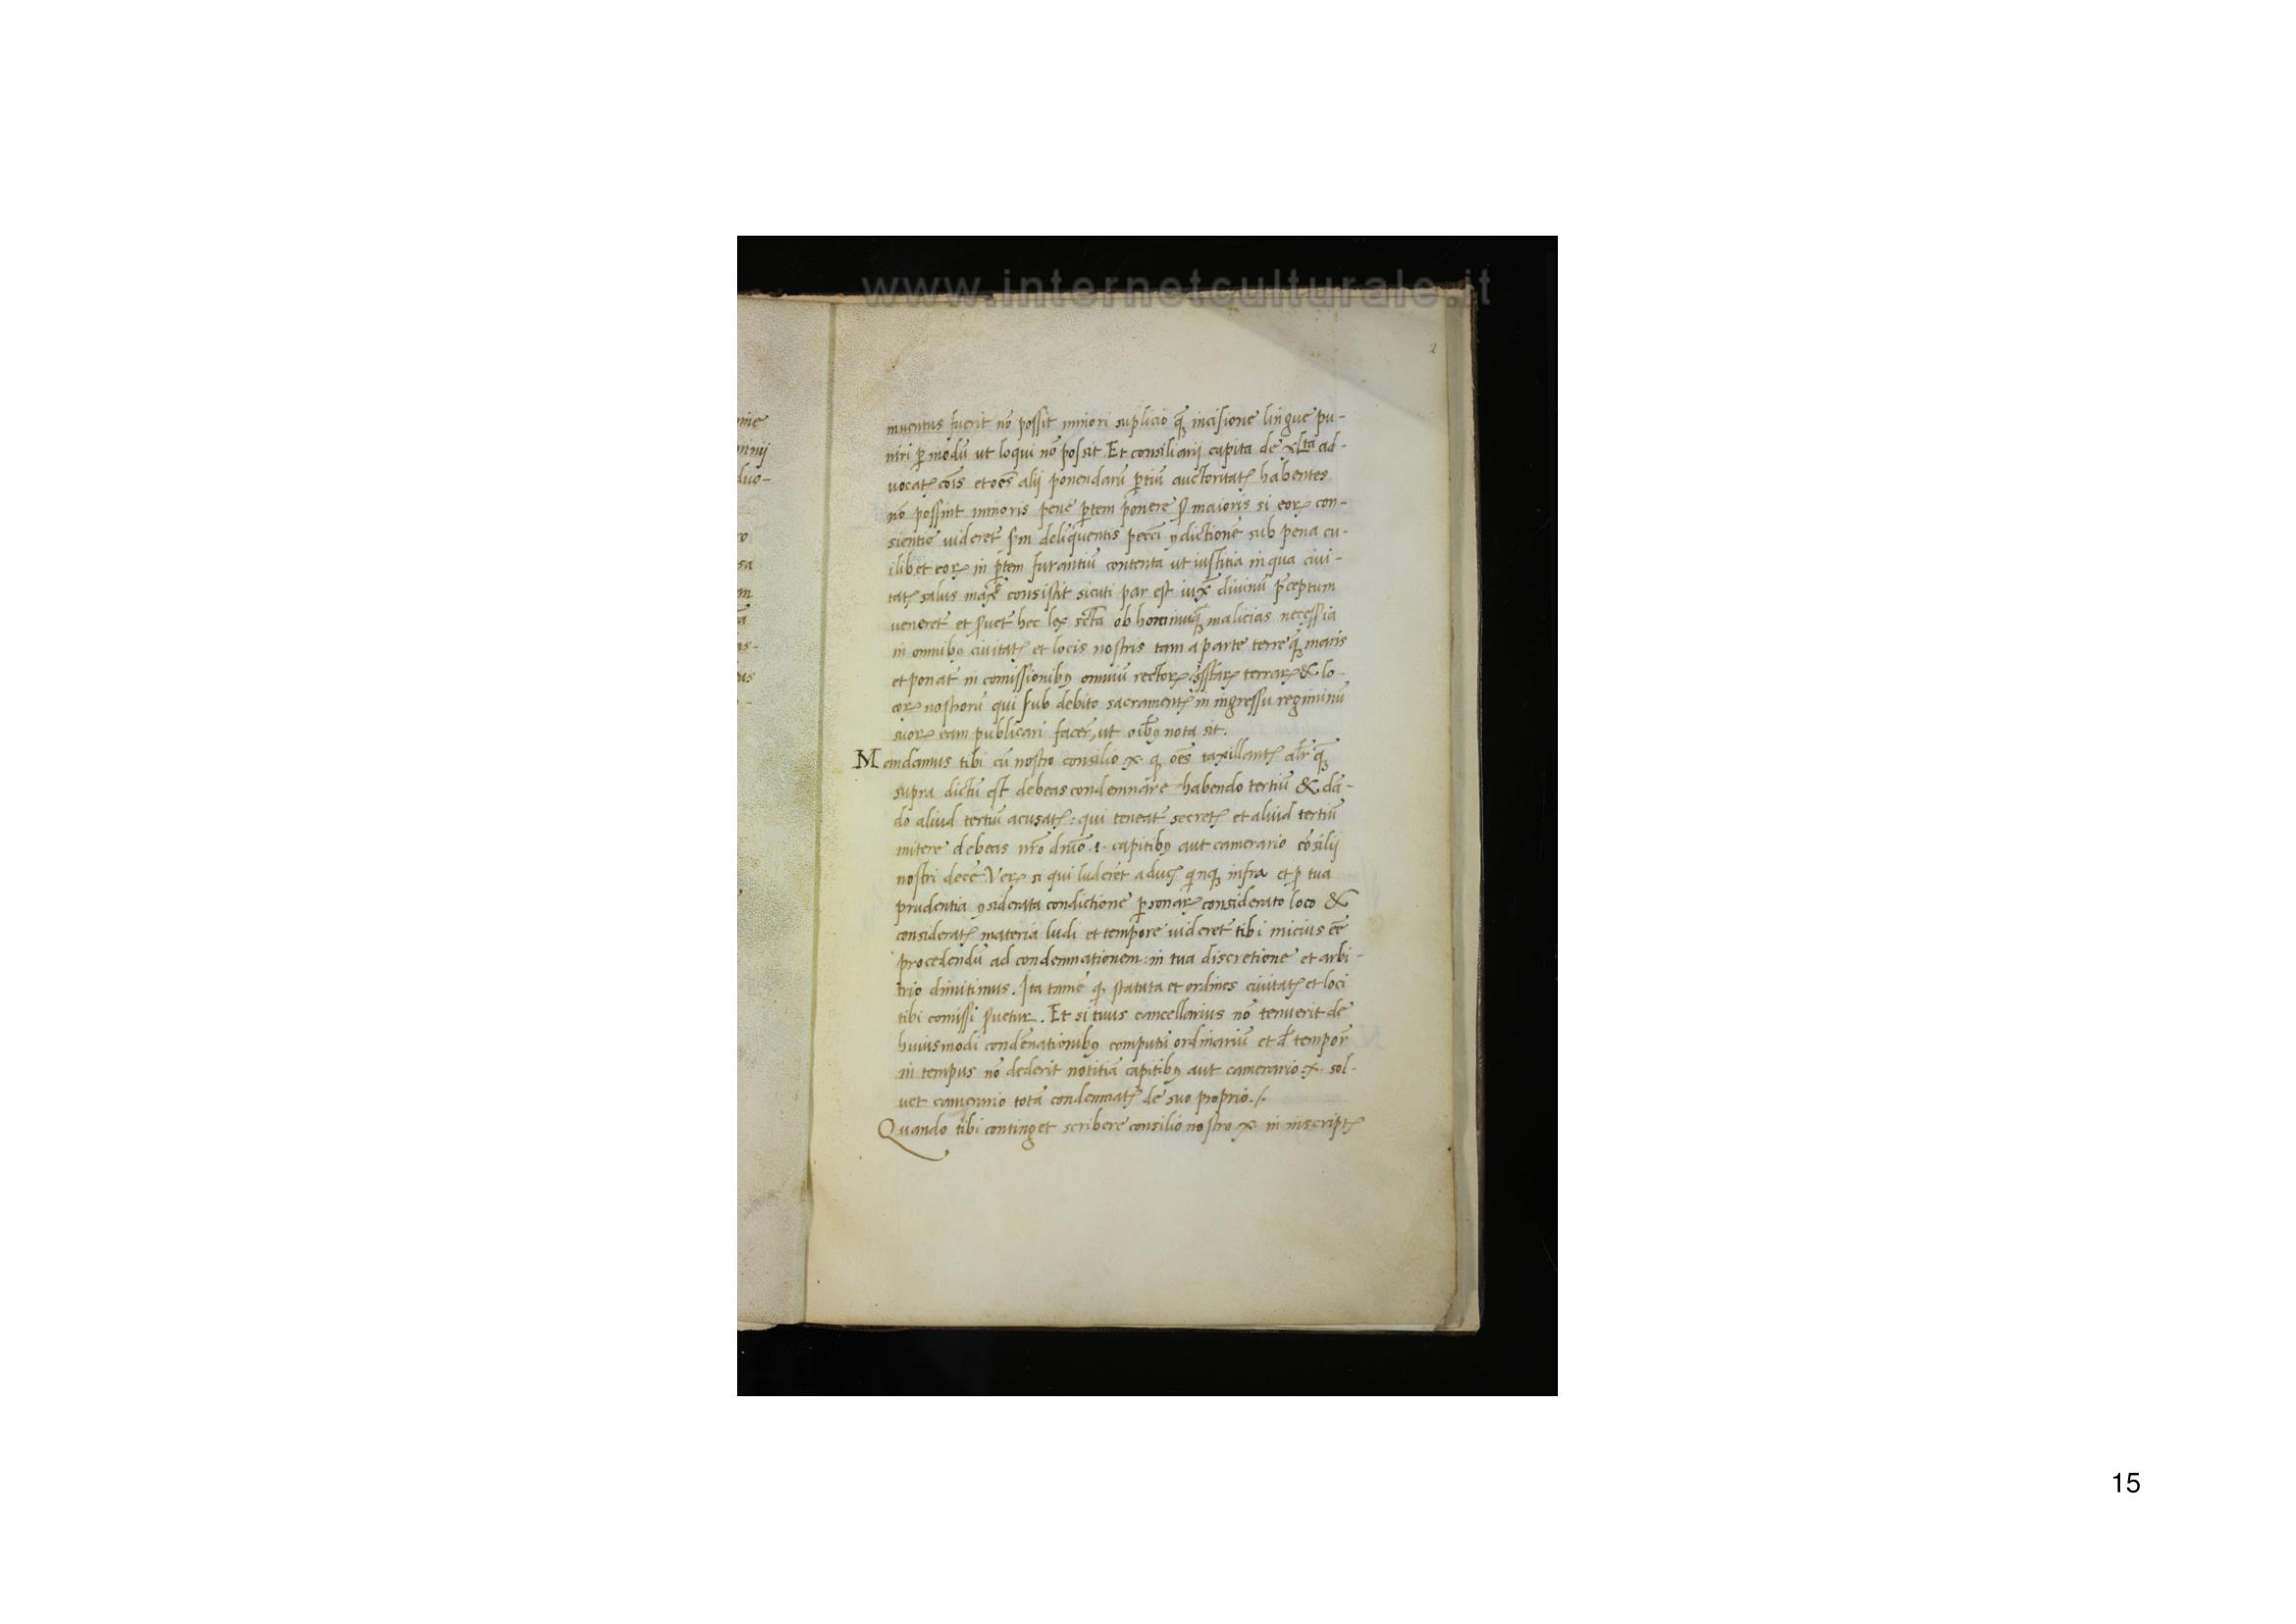 www.internetculturale.it
2
inuentus fuerit nō possit minori suplicio q̃ȝ incisione lingue pu-
niri p̱ modū ut loqui nō possit Et consiliarij capita de xLta ad-
uocatȝ cōis et oēs alij ponendarū p̱tiū auctoritatȝ habentes
nō possint minoris pene p̱tem ponere maioris si eorꝝ con-
sientie uideret̃ delīquentis sub pena cu-
ilibet eorꝝ in p̱tem furantiū contenta ut iustitia in qua ciui-
tatȝ salus consistit sicuti par est iux̃ diuinū p̃ceptum
ueneret̃ et hec lex ob hominuq̃ȝ malicias
in omnibꝯ ciuitatȝ et locis nostris tam a parte terre q̃ȝ maris
et ponat̃ in comissionibꝯ omniū rectorꝝ terrarꝝ & lo-
corꝝ nostrorū qui sub debito sacramentȝ in ingressu regiminū
suorꝝ eam publicari facer̃, ut oībꝯ nota sit.
Mandamus tibi cū nostro consilio .x. qȝ oēs taxillantȝ q̃ȝ
supra dictū est debeas condemnare habendo tertiū & dā-
do aliud tertiū acusatȝ: qui teneat̃ secretȝ et aliud tertiū
mitere debeas nr̃o dnīo .i. capitibꝯ aut camerario cōsilij
nostri decē. Verꝝ si qui luderēt a infra et p̱ tua
prudentia ꝯsiderata condictione p̱sonarꝝ considerato loco &
consideratȝ materia ludi et tempore uideret̃ tibi micius eē
procedendū ad condemnationem: in tua discretione et arbi-
trio dimitimus. Ita tamē qȝ statuta et ordines ciuitatȝ et loci
tibi comissi . Et si tuus cancellarius nō tenuerit de
huiusmodi condēnationibꝯ computū ordinariū et d̃ tempor̃
in tempus nō dederit notitiā capitibꝯ aut camerario .x. sol-
uet totā condemnatȝ de suo proprio ./.
Quando tibi continget scribere consilio nostro .x. in inscriptȝ
15